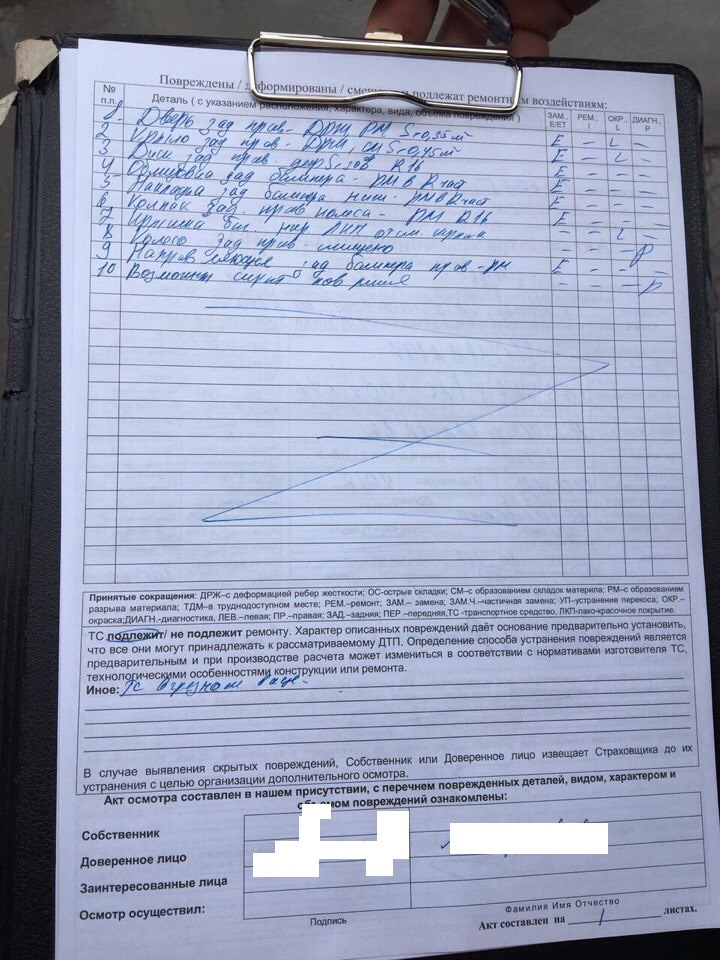 Повреждены / деформированы / смещены и подлежат ремонтным воздействиям:
№ п.п. Деталь ( с указанием расположения, характера, вида, объема повреждений ) ЗАМ.. E/ET РЕМ.. I ОКР.. L ДИАГН.. P
1. Дверь зад прав - ДРЖ РМ S=0,35 м² E – L –
2 Крыло зад прав - ДРЖ, СМ S=0,45 м² E – L –
3 Диск зад прав - R16 E – – –
4 Облицовка зад бампера - РМ в R част E – – –
5 Накладка зад бампера ниж - РМ в R част E – – –
6 Колпак зад. прав колеса - РМ R16 E – – –
7 – – L –
8 Колесо зад прав - смещено – – – P
9 Направляющая зад бампера прав - РМ E – – –
10 Возможны скрыт повреж – – – P
Принятые сокращения: ДРЖ–с деформацией ребер жесткости; ОС-острые складки; СМ–с образованием складок материла; РМ–с образованием
разрыва материала; ТДМ–в труднодоступном месте; РЕМ.–ремонт; ЗАМ.– замена; ЗАМ.Ч.–частичная замена; УП–устранение перекоса; ОКР.–
окраска;ДИАГН.-диагностика, ЛЕВ.–левая; ПР.–правая; ЗАД.–задняя; ПЕР.–передняя,ТС -транспортное средство, ЛКП-лако-красочное покрытие.
ТС подлежит/ не подлежит ремонту. Характер описанных повреждений даёт основание предварительно установить,
что все они могут принадлежать к рассматриваемому ДТП. Определение способа устранения повреждений является
предварительным и при производстве расчета может измениться в соответствии с нормативами изготовителя ТС,
технологическими особенностями конструкции или ремонта.
Иное: ТС в грязном виде.
В случае выявления скрытых повреждений, Собственник или Доверенное лицо извещает Страховщика до их
устранения с целью организации дополнительного осмотра.
Акт осмотра составлен в нашем присутствии, с перечнем поврежденных деталей, видом, характером и
объемом повреждений ознакомлены:
Собственник
Доверенное лицо
Заинтересованные лица
Осмотр осуществил:
Подпись
Фамилия Имя Отчество
Акт составлен на 1 листах.